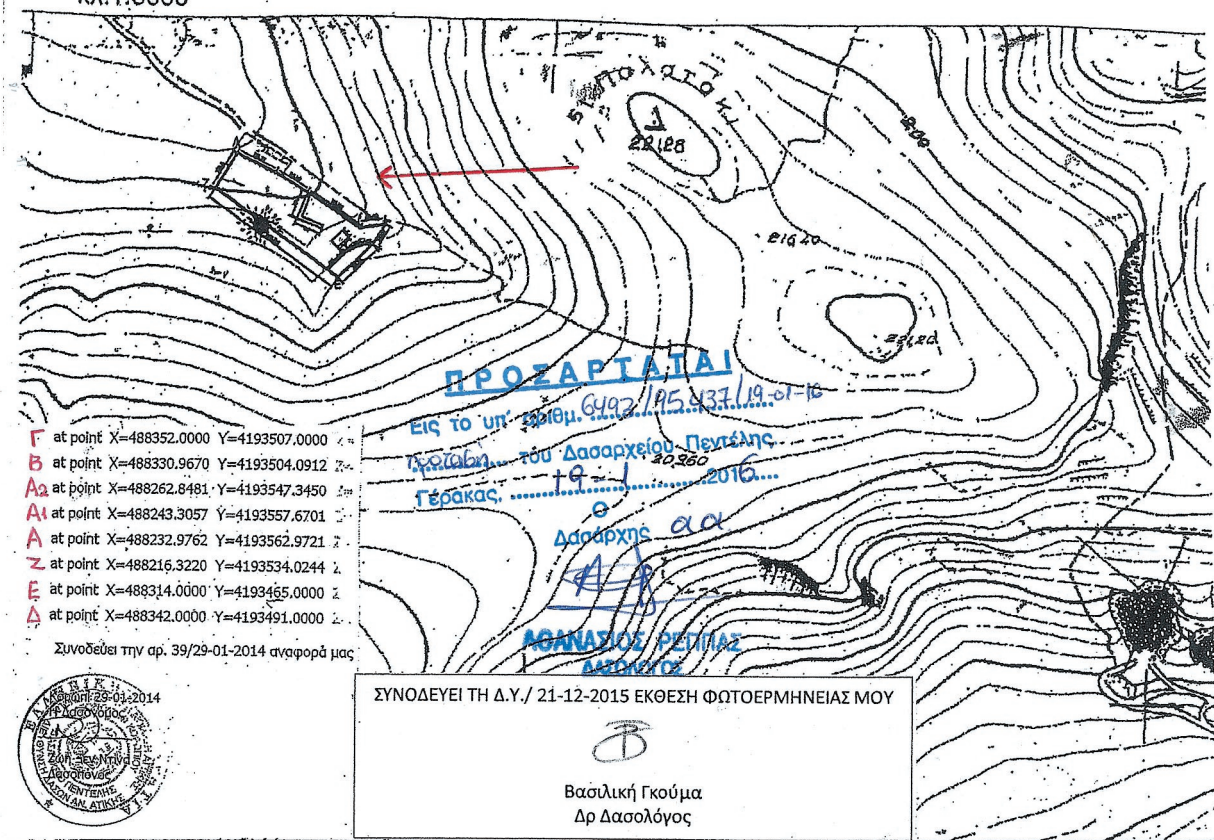 ΚΛ.1:5000
51 Παλατάκι
221,28
200
216,40
221,20
ΠΡΟΣΑΡΤΑΤΑΙ
Εις το υπ' αριθμ. 6492/195.437/19-01-16
πρόταση του Δασαρχείου Πεντέλης
20360
Γέρακας, 19-1 2016
Ο
Δασάρχης α α
ΑΘΑΝΑΣΙΟΣ ΡΕΠΠΑΣ
ΔΑΣΟΛΟΓΟΣ
Γ at point X=488352.0000 Y=4193507.0000
Β at point X=488330.9670 Y=4193504.0912
Α2 at point X=488262.8481 Y=4193547.3450
Α1 at point X=488243.3057 Y=4193557.6701
Α at point X=488232.9762 Y=4193562.9721
Ζ at point X=488216.3220 Y=4193534.0244
Ε at point X=488314.0000 Y=4193465.0000
Δ at point X=488342.0000 Y=4193491.0000
Συνοδεύει την αρ. 39/29-01-2014 αναφορά μας
Κορωπί 29-01-2014
Δασονόμος
Δασοπόνος
ΣΥΝΟΔΕΥΕΙ ΤΗ Δ.Υ./ 21-12-2015 ΕΚΘΕΣΗ ΦΩΤΟΕΡΜΗΝΕΙΑΣ ΜΟΥ
Βασιλική Γκούμα
Δρ Δασολόγος